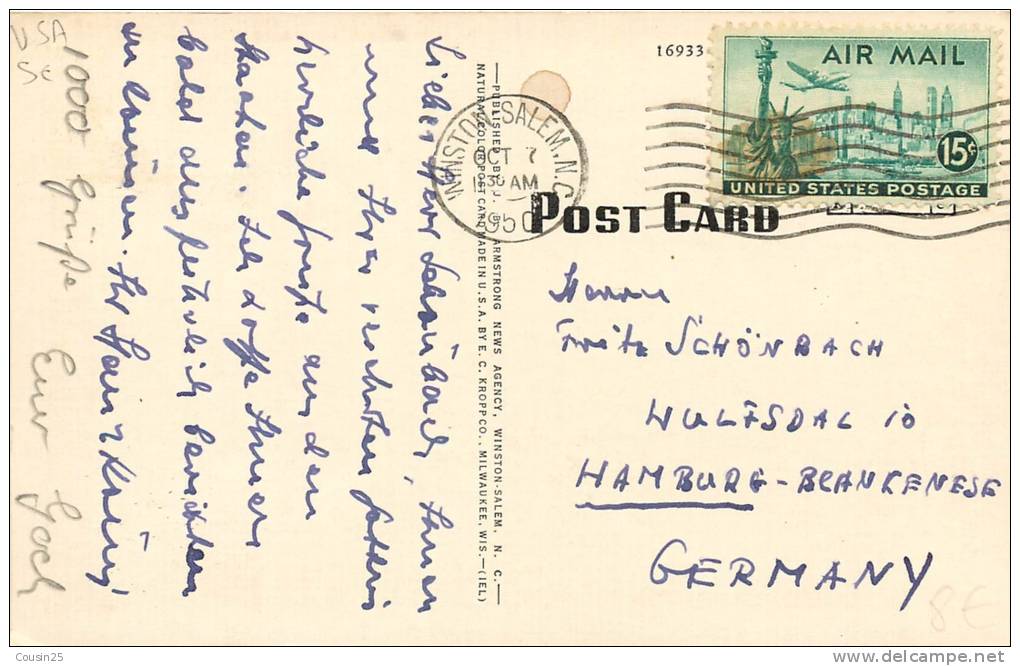 USA
5€
16933
AIR MAIL
15¢
UNITED STATES POSTAGE
WINSTON-SALEM, N.C.
OCT 7
AM
1950
POST CARD
—PUBLISHED BY J. B. ARMSTRONG NEWS AGENCY, WINSTON-SALEM, N. C.—
NATURAL COLOR POST CARD MADE IN U.S.A. BY E. C. KROPP CO., MILWAUKEE, WIS.—(IEL)
Lieber Herr Schönbach, Ihnen
und Ihrer verehrten Gattin
herzliche Grüsse aus den
Staaten. Ich hoffe Ihnen
bald ausführlich berichten
zu können. Ihr Heinz König,
1000 Grüße Euer
Herrn
Fritz SCHÖNBACH
WULFSDAL 10
HAMBURG-BLANKENESE
GERMANY
8€
Cousin25
www.delcampe.net